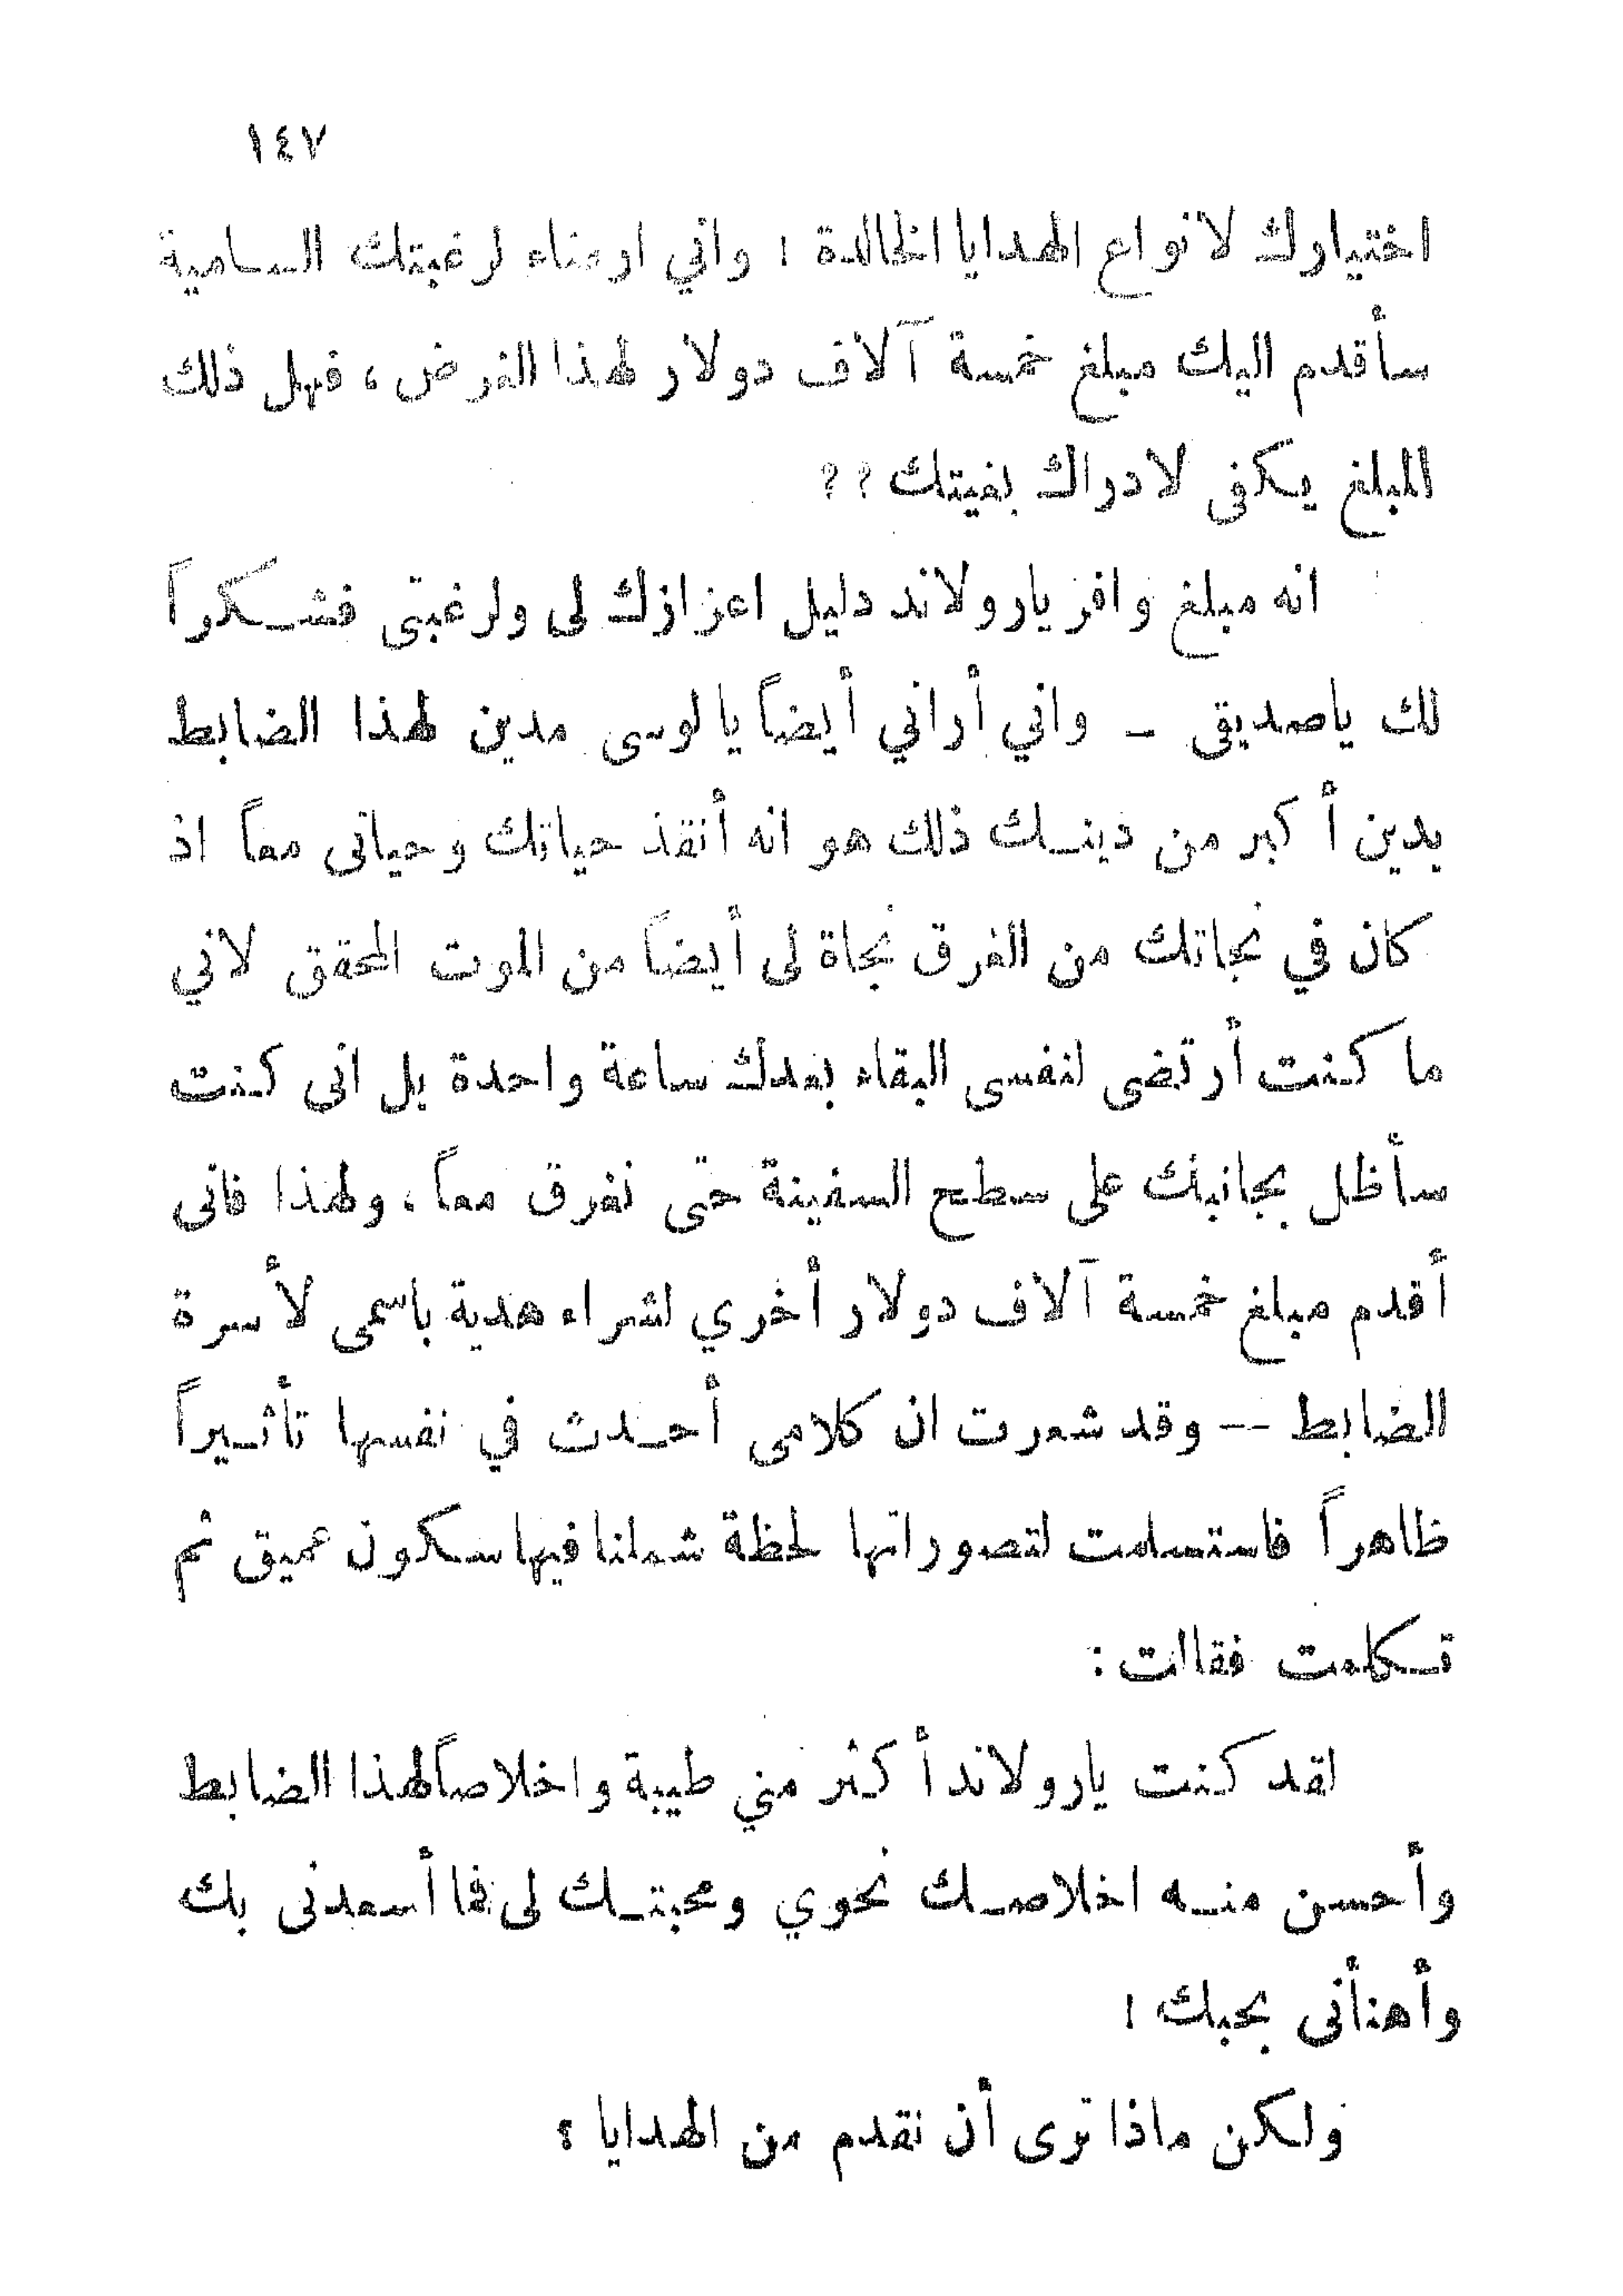 ١٤٧
اختيارك لانواع الهدايا الخالدة ! واني ارضاء لرغبتك السامية
سأقدم اليك مبلغ خمسة آلاف دولار لهذا الغرض ، فهل ذلك
المبلغ يكفى لادراك بغيتك ؟؟
انه مبلغ وافر يارولاند دليل اعزازك لى ولرغبتى فشكراً
لك ياصديقى - واني أراني أيضاً يالوسى مدين لهذا الضابط
بدين أكبر من دينك ذلك هو انه أنقذ حياتك وحياتى معاً اذ
كان في نجاتك من الغرق نجاة لى أيضاً من الموت المحقق لاني
ما كنت أرتضى لنفسى البقاء بعدك ساعة واحدة بل انى كنت
سأظل بجانبك على سطح السفينة حتى نغرق معاً ، ولهذا فانى
أقدم مبلغ خمسة آلاف دولار أخري لشراء هدية باسمى لأسرة
الضابط -- وقد شعرت ان كلامى أحدث في نفسها تأثيراً
ظاهراً فاستسلمت لتصوراتها لحظة شملنا فيها سكون عميق ثم
تكلمت فقالت :
لقد كنت يارولاند أكثر مني طيبة واخلاصاً لهذا الضابط
وأحسن منه اخلاصك نحوي ومحبتك لى فما أسعدنى بك
وأهنأنى بحبك !
ولكن ماذا ترى أن نقدم من الهدايا ؟